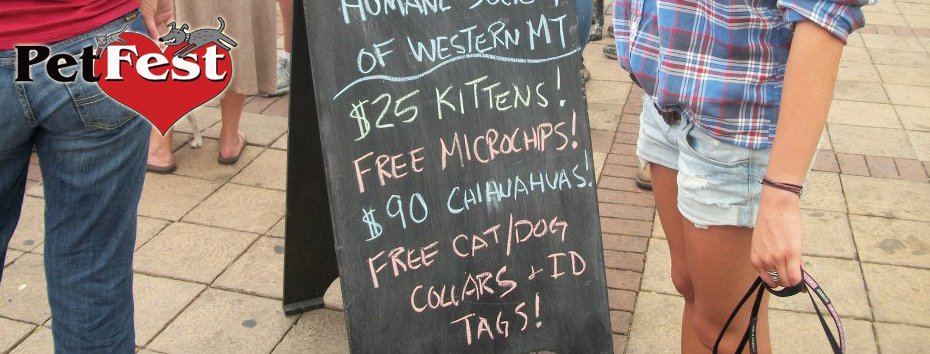 PetFest
HUMANE SOCIETY
OF WESTERN MT
$25 KITTENS!
FREE MICROCHIPS!
$90 CHIHUAHUAS!
FREE CAT/DOG
COLLARS + ID
TAGS!